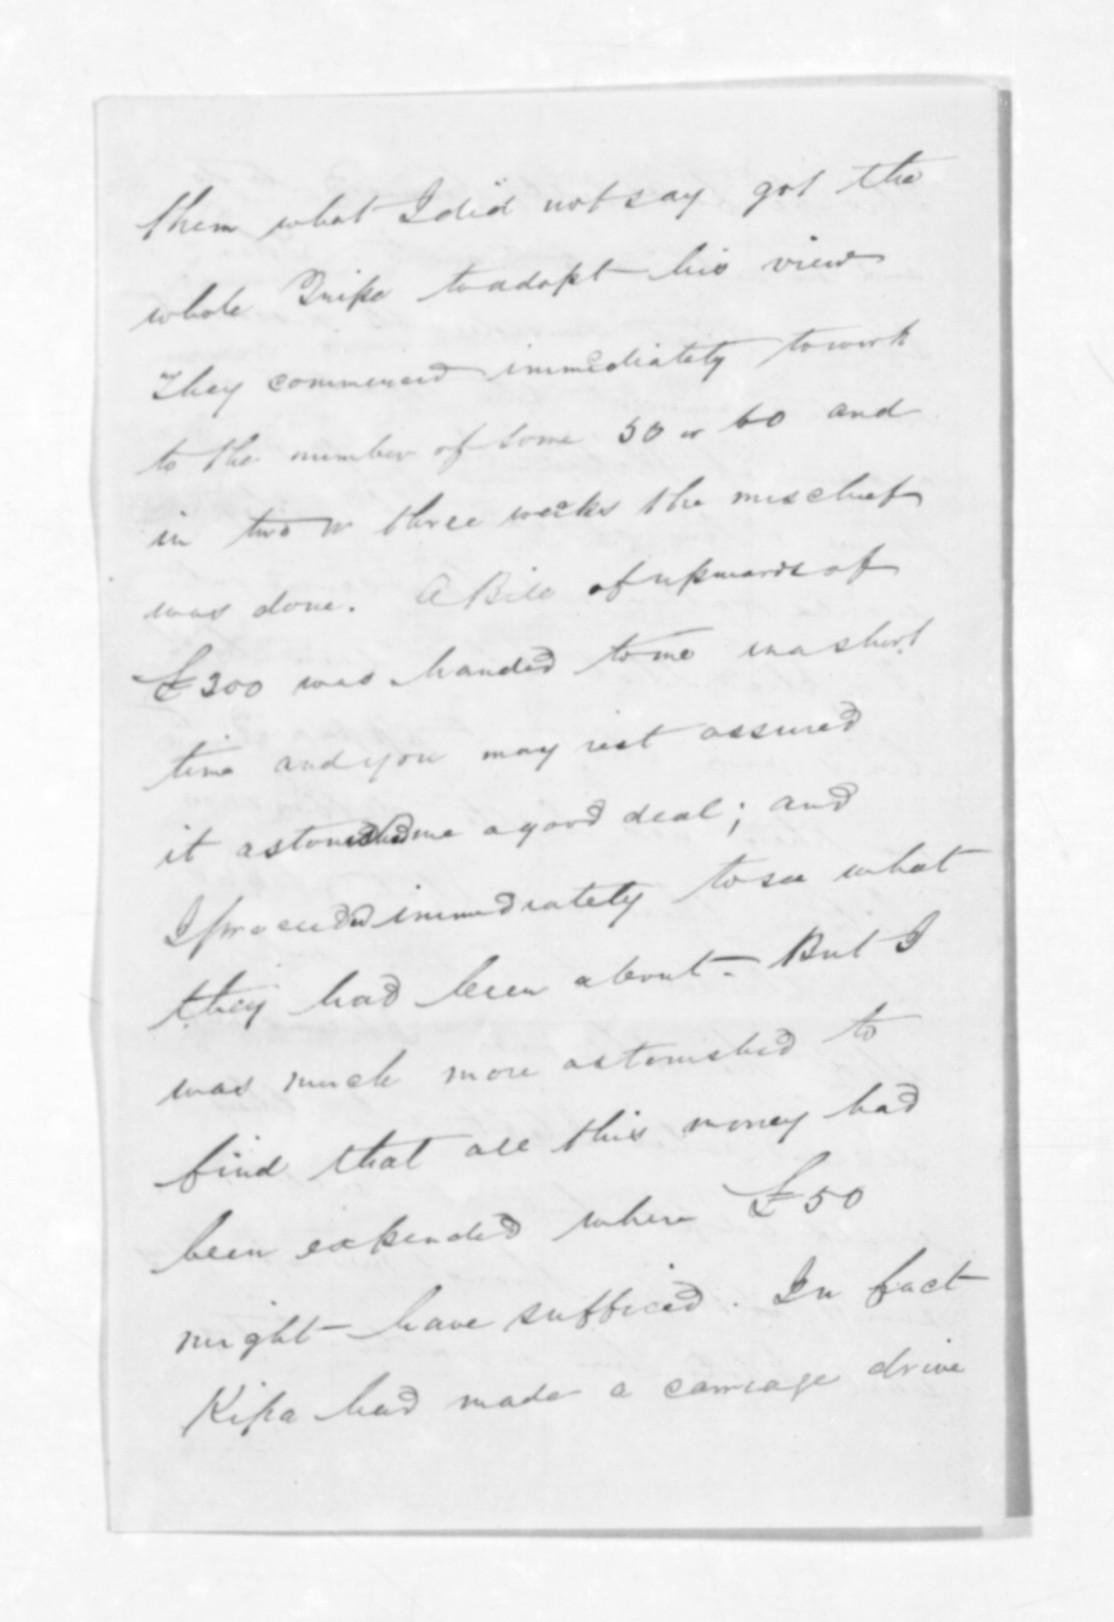 them what I did not say got the
whole Tribe to adopt his view
They commenced immediately to work
to the number of some 50 or 60 and
in two or three weeks the mischief
was done. A Bill of upwards of
£300 was handed to me in a short
time and you may rest assured
it astonished me a good deal; and
I proceeded immediately to see what
they had been about - But I
was much more astonished to
find that all this money had
been expended where £50
might have sufficed. In fact
Kipa had made a carriage drive